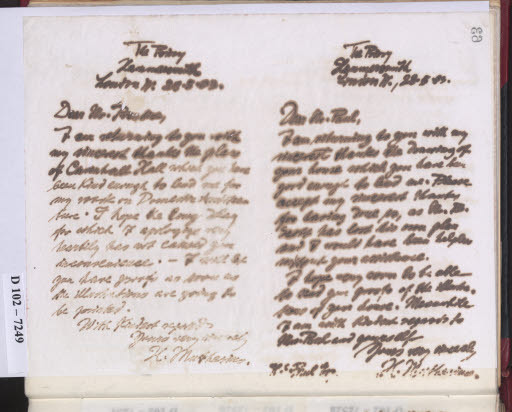 63
The Priory
Hammersmith
London W. 28.5.02.
Dear Mr.
I am returning to you with
my sincerest thanks the plans
of Hall which you have
been kind enough to lend me for
my work on Domestic Architec-
ture. I hope the long delay
for which I apologise very
has not caused you
inconvenience. — I will let
you have proofs as soon as
the illustrations are going to
be printed.
With kindest regards
Yours very sincerely
H. Muthesius.
The Priory
Hammersmith
London W., 28.5.02.
Dear Mr.
I am returning to you with my
sincerest thanks the drawing of
your house which you have been
good enough to lend me. Please
accept my sincerest thanks
for having done so, as Mr. B.
has lost his own plan
and I would have been helpless
without your assistance.
I hope very soon to be able
to send you proofs of the illustra-
tions of your house. Meanwhile
I am with kindest regards to
Mrs. and yourself
Yours very sincerely
H. Muthesius.
D 102 – 7249